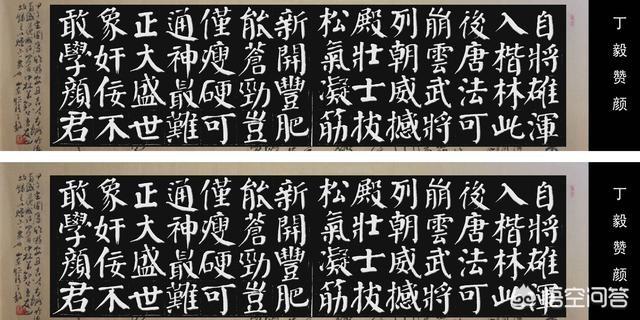 丁毅赞颜
自將雄渾
入楷林此
後唐法可
崩雲武將
列朝威撼
殿壯士拔
松氣凝筋
新開豐肥
能蒼勁豈
僅瘦硬可
通神最難
正大盛世
象奸佞不
敢學顏君
丁毅赞颜
自將雄渾
入楷林此
後唐法可
崩雲武將
列朝威撼
殿壯士拔
松氣凝筋
新開豐肥
能蒼勁豈
僅瘦硬可
通神最難
正大盛世
象奸佞不
敢學顏君
悟空问答